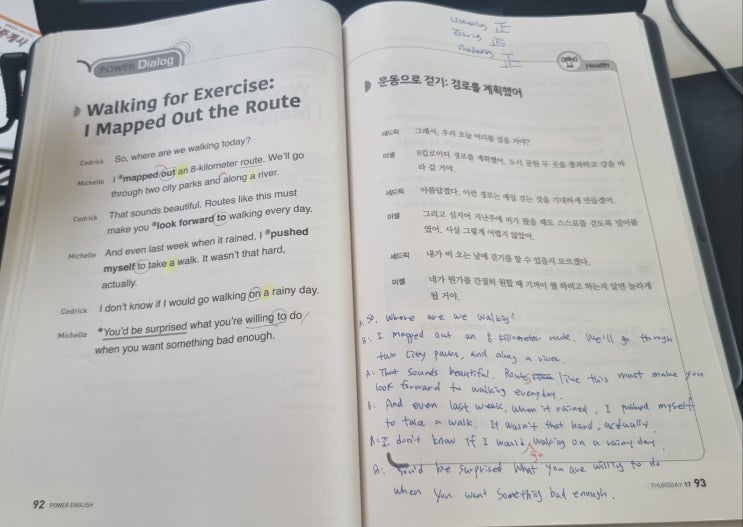 POWER Dialog
Walking for Exercise:
I Mapped Out the Route
Cedrick So, where are we walking today?
Michelle I *mapped out an 8-kilometer route. We'll go
through two city parks and along a river.
Cedrick That sounds beautiful. Routes like this must
make you *look forward to walking every day.
Michelle And even last week when it rained, I *pushed
myself to take a walk. It wasn't that hard,
actually.
Cedrick I don't know if I would go walking on a rainy day.
Michelle *You'd be surprised what you're willing to do
when you want something bad enough.
92 POWER ENGLISH
Listening 正
正
正
Health
운동으로 걷기: 경로를 계획했어
세드릭 그래서, 우리 오늘 어디를 걸을 거야?
미셸 8킬로미터 경로를 계획했어. 도시 공원 두 곳을 통과하고 강을 따
라 갈 거야.
세드릭 아름답겠다. 이런 경로는 매일 걷는 것을 기대하게 만들겠어.
미셸 그리고 심지어 지난주에 비가 왔을 때도 스스로를 걷도록 밀어붙
였어. 사실 그렇게 어렵지 않았어.
세드릭 내가 비 오는 날에 걷기를 할 수 있을지 모르겠다.
미셸 네가 뭔가를 간절히 원할 때 기꺼이 뭘 하려고 하는지 알면 놀라게
될 거야.
A. So, where are we walking?
B: I mapped out an 8 kilometer route. We'll go through
two city parks, and along a river.
A: That sounds beautiful. Routes like this must make you
look forward to walking everyday.
B: And even last week, when it rained, I pushed myself
to take a walk. It wasn't that hard, actually.
A: I don't know if I would go walking on a rainy day.
A: You'd be surprised what you are willing to do
when you want something bad enough.
THURSDAY 17 93